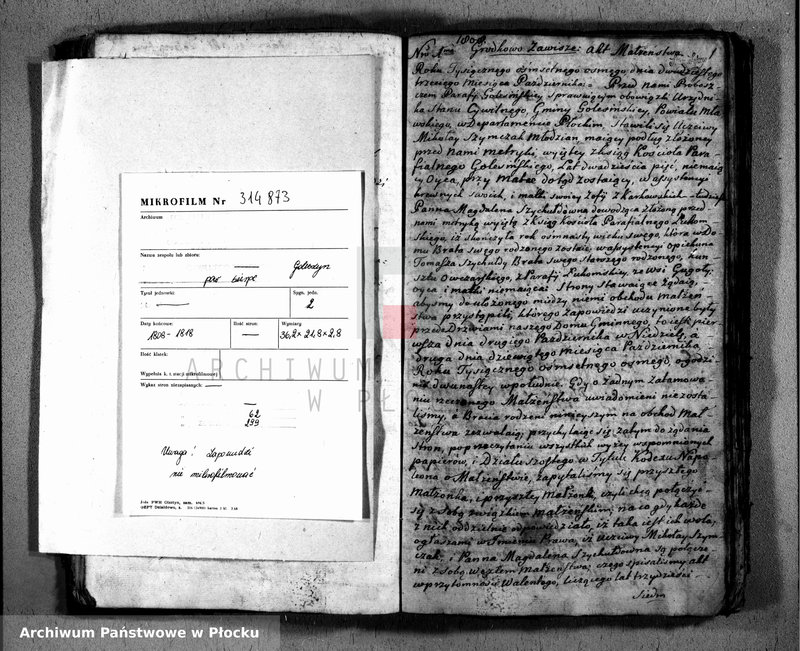 MIKROFILM Nr 314 873
Archiwum
Nazwa zespołu lub zbioru:
par
Tytuł jednostki:
Sygn. jedn.
2
Daty końcowe:
1808 - 1818
Ilość stron:
Wymiary
36,2 x 21,8 x 2,8
Ilość klatek:
Wykaz stron niezapisanych:
62
299
Uwaga! Zapowiedzi
nie mikrofilmować
1808
Nro 1mo Grodkowo Zawisze: Akt Małżeństwa. 1
Roku Tysiącznego osmsetnego osmego dnia dwudziestego
trzeciego Miesiąca Października. Przed nami Probosz-
czem Parafij Golesińskiey sprawuiącym obowiązki Urzędni-
ka Stanu Cywilnego, Gminy Golesińskiey, Powiatu Mła-
wskiego, w Departamencie Płockim. Stawili się Uczciwy
Mikołay Szymczak Młodzian, maiący podług złożoney
przed Nami metryki, wyiętey z ksiąg Kościoła Para-
fialnego Golesińskiego, Lat dwadzieścia pięć, niemaią-
cy Oyca, przy Matce dotąd zostaiący, w assystencyi
krewnych swoich, i matki swoiey Zofij z Karłowskich
Panna Magdalena Szychułdówna dowodząca złożoną przed
nami metryką wyiętą z ksiąg Kościoła Parafialnego Łukom-
skiego, iż skończyła rok osmnasty wieku swego, która w Do-
mu Brata swego rodzonego zostaie, w assystencyi opiekuna
Tomasza Szychułdy Brata swego starszego rodzonego, kun-
sztu Owczarskiego, z Parafij Łukomskiey, ze Wsi
oyca i matki niemaiącéi Strony Stawaiące żądaią,
abyśmy do ułożonego między niemi obchodu małżeń-
stwa przystąpili, którego zapowiedzi uczynione były
przede Drzwiami naszego Domu Gminnego, to iest pier-
wsza dnia drugiego Października w Niedzielę,
druga dnia dziewiątego miesiąca Października
Roku Tysiącznego osmsetnego osmego, o godzi-
nie dwunastey, w południe. Gdy o żadnym zatamowa-
niu rzeczonego Małżeństwa uwiadomieni niezosta-
liśmy, a Bracia rodzeni ninieyszym na obchod Mał-
żeństwa zezwalaią, przychylaiąc się zatym do żądania
stron, po przeczytaniu wszystkich wyżey wspomnionych
papierów, i Działu szostego w Tytule Kodexu Napo-
leona o Małżeństwie, zapytaliśmy się przyszłego
Małżonka, i przyszłey Małżonki, czyli chcą połączyć
się z sobą związkiem małżeńskim, na co gdy każde
z nich oddzielnie odpowiedziało, iż taka iest ich wola,
ogłaszamy w Imieniu Prawa, iż Uczciwy Mikołay Szym-
czak, i Panna Magdalena Szychułdówna są połącze-
ni z sobą węzłem Małżeństwa, czego spisaliśmy akt
w przytomności Walentego, liczącego lat trzydzieści
siedm
ARCHIWUM
W PŁ
Archiwum Państwowe w Płocku